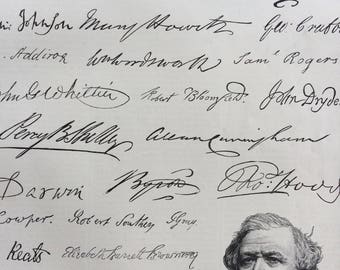 n: Johnson Mary Howitt Geo. Crabbe
Addison Wm Wordsworth Saml Rogers
John G Whittier Robert Bloomfield John Dryde
Percy B Shelley Allan Cunningham
Darwin Byron Tho. Hood
Cowper. Robert Southey TGray
Keats Elizabeth Barrett Browning